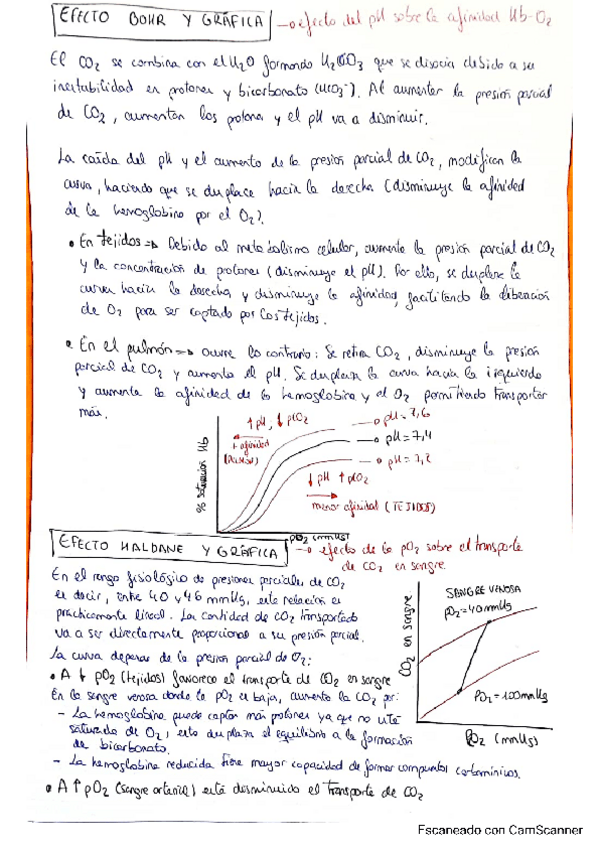 EFECTO BOHR Y GRÁFICA → efecto del pH sobre la afinidad Hb-O2
El CO2 se combina con el H2O formando H2CO3 que se disocia debido a su
inestabilidad en protones y bicarbonato (HCO3-). Al aumentar la presión parcial
de CO2, aumentan los protones y el pH va a disminuir.
La caída del pH y el aumento de la presión parcial de CO2, modifican la
curva, haciendo que se desplace hacia la derecha (disminuye la afinidad
de la hemoglobina por el O2).
• En tejidos => Debido al metabolismo celular, aumenta la presión parcial de CO2
y la concentración de protones (disminuye el pH). Por ello, se desplaza la
curva hacia la derecha y disminuye la afinidad, facilitando la liberación
de O2 para ser captado por los tejidos.
• En el pulmón => ocurre lo contrario: Se retira CO2, disminuye la presión
parcial de CO2 y aumenta el pH. Se desplaza la curva hacia la izquierda
y aumenta la afinidad de la hemoglobina y el O2 permitiendo transportar
más.
% saturación Hb
↑pH, ↓pCO2
+ afinidad
pH=7,6
pH=7,4
pH=7,2
↓pH ↑pCO2
menor afinidad (TEJIDOS)
pO2 (mmHg)
EFECTO HALDANE Y GRÁFICA → efecto de la pO2 sobre el transporte
de CO2 en sangre
En el rango fisiológico de presiones parciales de CO2
es decir, entre 40 y 46 mmHg, esta relación es
prácticamente lineal. La cantidad de CO2 transportado
va a ser directamente proporcional a su presión parcial.
La curva depende de la presión parcial de O2:
• A ↓ pO2 (tejidos) favorece el transporte de CO2 en sangre
En la sangre venosa donde la pO2 es baja, aumenta la CO2 por:
- La hemoglobina puede captar más protones ya que no está
saturada de O2, esto desplaza el equilibrio a la formación
de bicarbonato.
- La hemoglobina reducida tiene mayor capacidad de formar compuestos carbamínicos.
• A ↑ pO2 (sangre arterial) está disminuido el transporte de CO2
CO2 en sangre
SANGRE VENOSA
pO2=40mmHg
PO2=100mmHg
PO2 (mmHg)
Escaneado con CamScanner